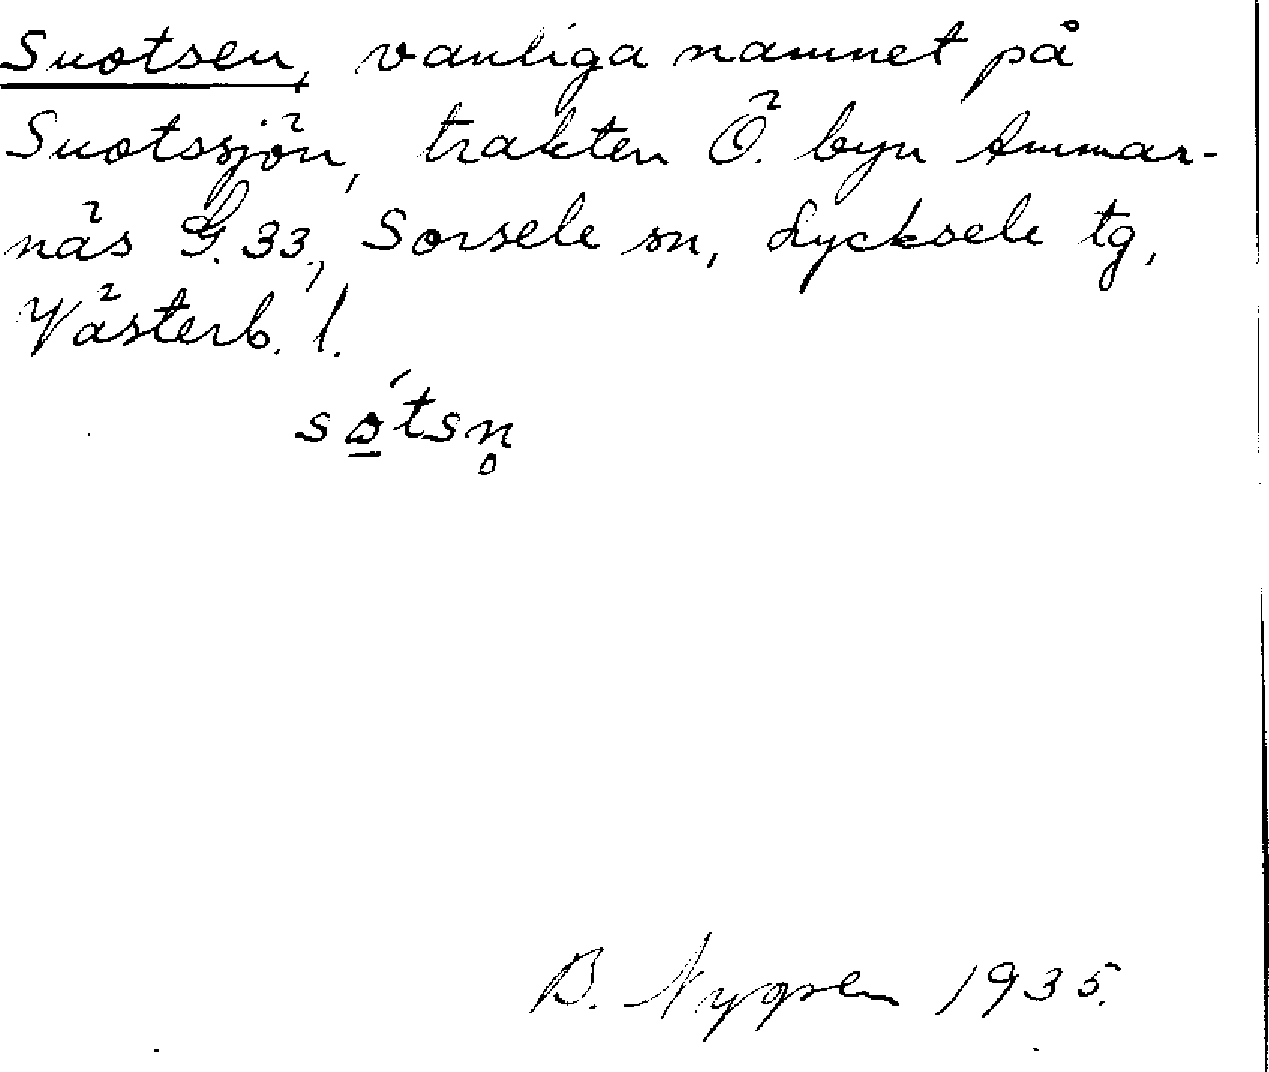 Suotsen, vanliga namnet på
Suotssjön, trakten Ö. byn Ammar-
näs G. 33., Sorsele sn, Lycksele tg,
Västerb. l.
B. Nygren 1935.